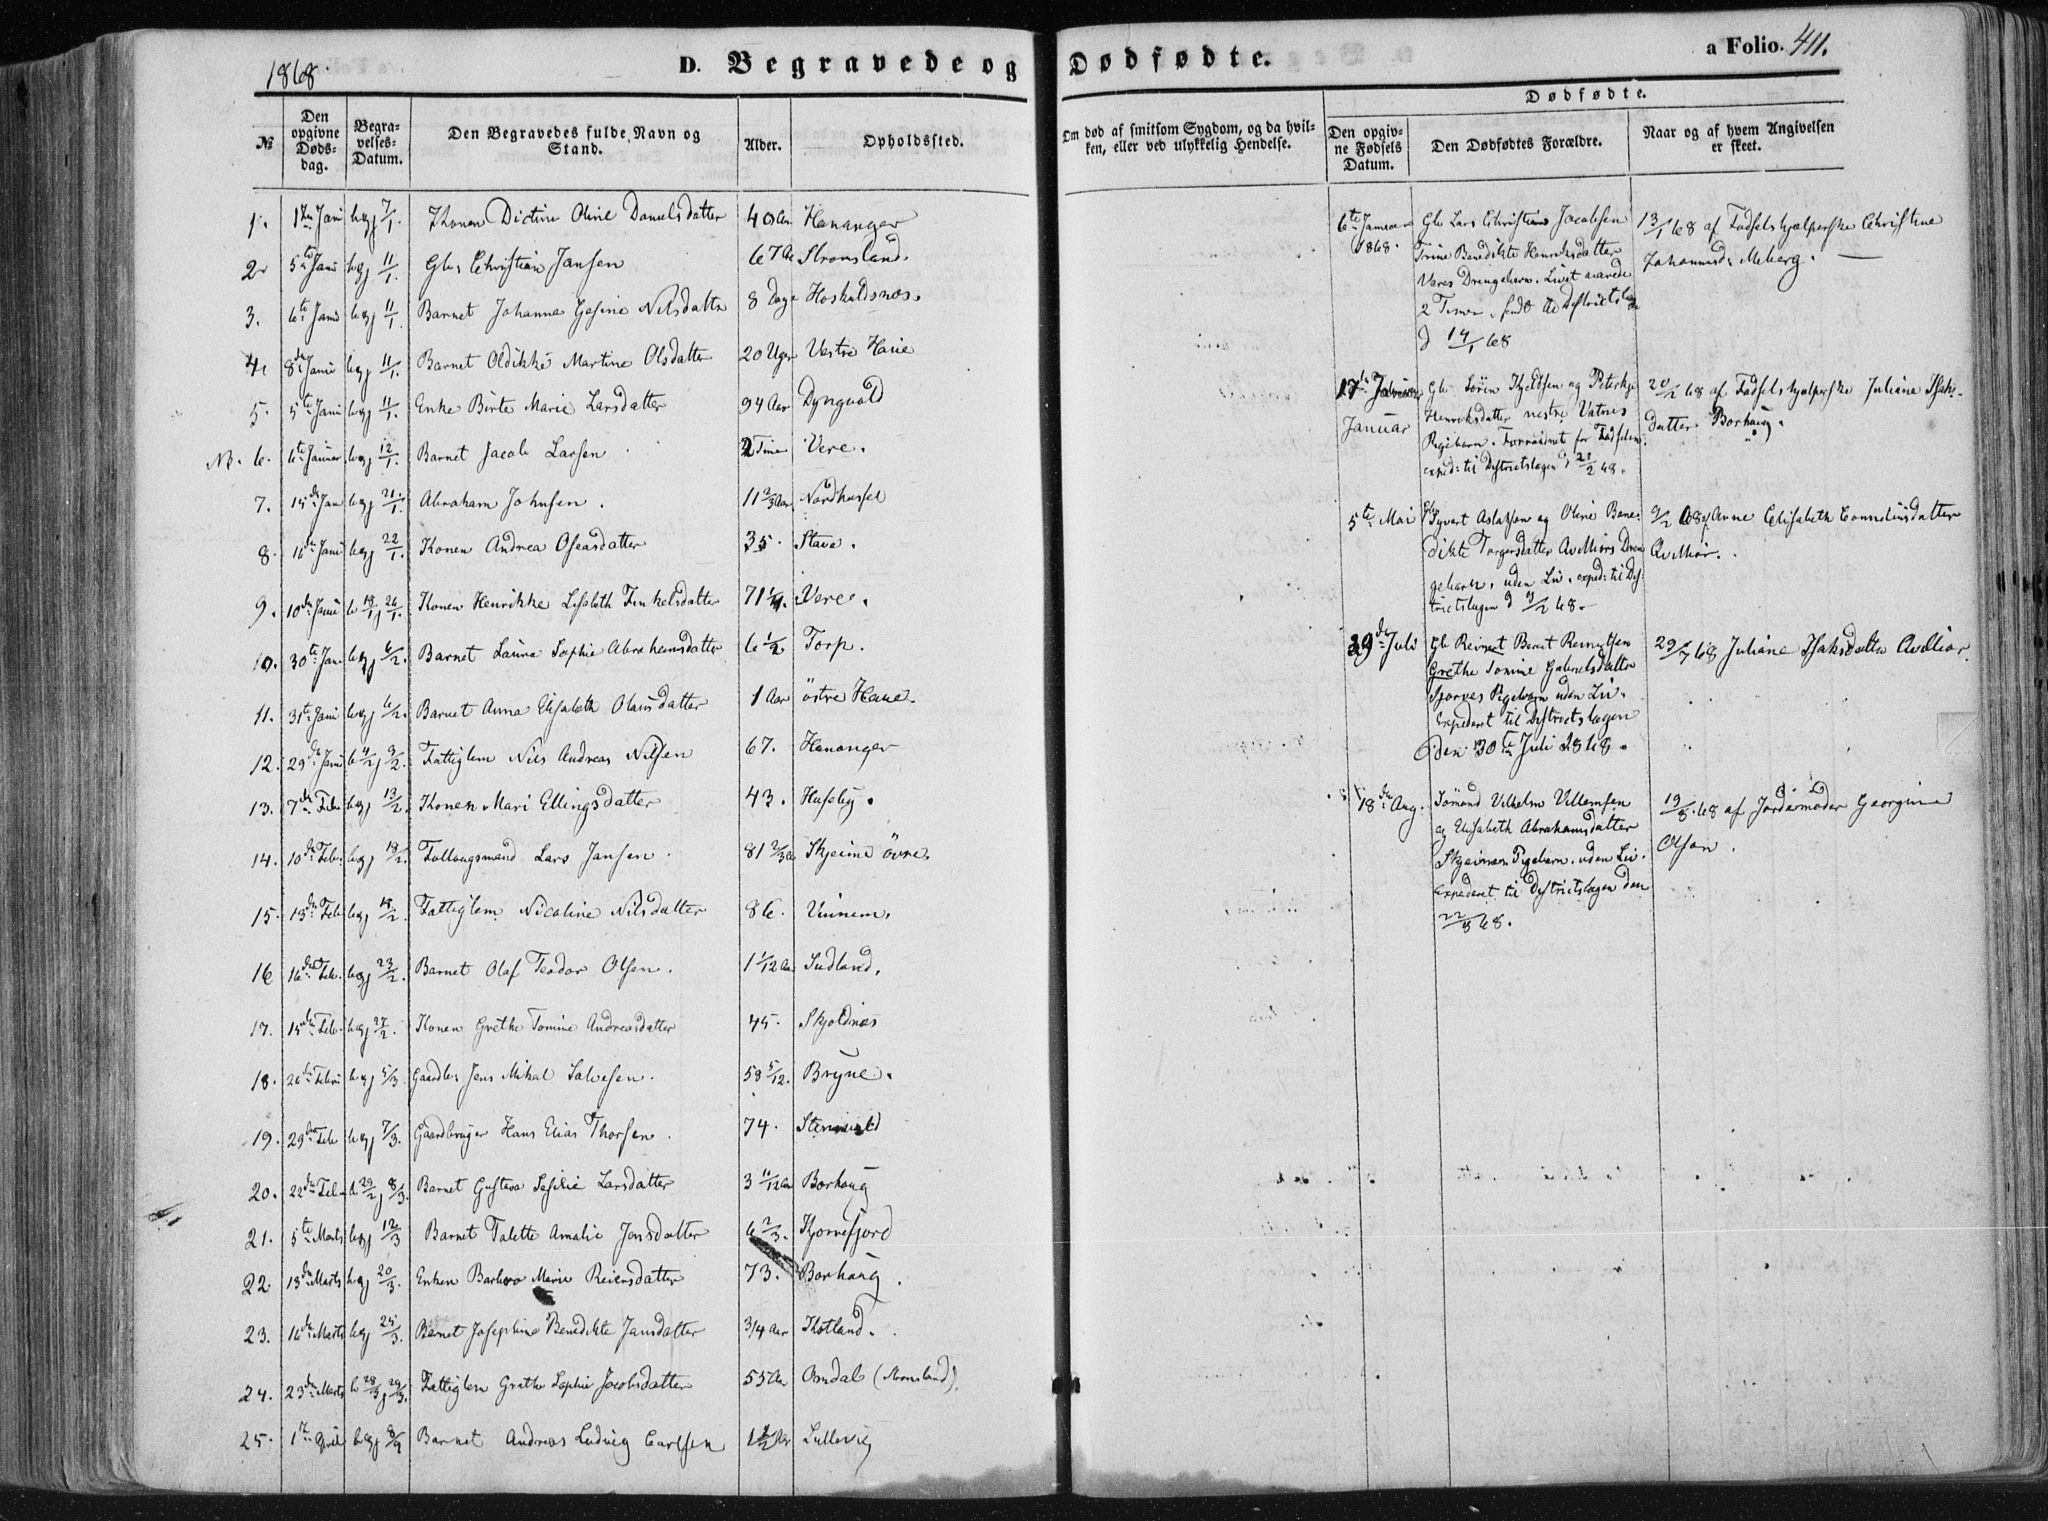 1868.
D. Begravede og Dødfødte.
a Folio. 411.
№
Den opgivne Døds-dag.
Begra-velses-Datum.
Den Begravedes fulde Navn og Stand.
Alder.
Opholdssted.
Om død af smitsom Sygdom, og da hvil-ken, eller ved ulykkelig Hendelse.
Dødfødte.
Den opgiv-ne Fødsels Datum.
Den Dødfødtes Forældre.
Naar og af hvem Angivelsen er skeet.
1. 1ste Janu beg 7/1. Konen Olene Danielsdatter 40 Aar Hananger
2. 5te Janu beg 11/1. Gbr Christian Jansen 67 Aar Stromsland.
3. 6te Janu beg 11/1. Barnet Johanna Gesine Nilsdattr 8 Dage Hoskuldsnæs.
4. 8de Janu beg 11/1. Barnet Oldikke Martine Olsdatter 20 Uger Vestre Haue
5. 5te Janu beg 11/1. Enke Birte Marie Larsdatter 94 Aar Dyngvold
N. 6. 6te Januar beg 12/1. Barnet Jacob Larsen 2 Time Vere.
7. 15de Jan beg 21/1. Abraham Johnsen. 11 2/3 Aar Nordhassel
8. 16de Janu beg 22/1. Konen Andrea Oseasdatter 35. Stave.
9. 10de Janu b 19/1 j 26/1. Konen Henrikke Lisabeth Tinkelsdatter 71 Vere.
10. 30te Jan beg 6/2. Barnet Laura Sophie Abrahamsdatter 6 1/2 Torp.
11. 31te Janu beg 6/2. Barnet Anna Elisabeth Olausdatter 1 Aar østre Haue.
12. 29de Janu b 4/2 j 9/2. Fattiglem Nils Andreas Nilsen 67. Hananger
13. 7de Feb beg 13/2. Konen Mari Ellingsdatter 43. Huseby.
14. 10de Feb. beg 18/2. Follaugsmand Lars Jansen. 81 2/3 Skjeime øvre.
15. 13de Feb beg 18/2. Fattiglem Nicoline Nilsdatter 86. Vinnem.
16 16de Feb. beg 23/2. Barnet Olaf Teodor Olsen. 1 1/12 Aar Sudland.
17. 15de Feb. beg 27/2. Konen Grethe Tomine Andreasdatter 45. Skjoldnæs
18. 26de Febru beg 5/3. Gaardbr. Jens Mikal Salvesen. 58 5/12. Bryne.
19. 29de Feb beg 7/3. Gaardbruger Hans Elias Thorsen. 74.
20. 22de Feb b 29/2 j 8/3. Barnet Gustava Larsdatter 3 11/12 Aar Borhaug
21. 5te Marts beg 12/3 Barnet Talette Amalie Jansdatter 6 2/3. Kjørrefjord
22. 13de Marts beg 20/3. Enken Barbro Marie Reiersdatter 73. Borhaug.
23. 16de Marts beg 25/3. Barnet Josephine Benedikte Jansdatter 3/4 Aar Kotland.
24. 23de Marts b 28/3 j 29/3. Fattiglem Grethe Sophie Jacobsdatter 55 Aar Omdal (Stromsland).
25. 1ste April beg 8/4 Barnet Andreas Ludvig Carlsen 1 1/2 Aar Lullevig
6te Januar 1868.
Gbr Lars Christian Jacobsen
Trine Benedikte Henriksdatter
Veres Drengebarn. Livet varede
2 Timer. sendt til Distriktslægen
d 14/1 68
13/1 68 af Fødselshjælperske Christine
Johannesd: Meberg.
17de Januar
Gbr Sören Kjeldsen og Peterkje
Henriksdatter nestre Vatnes
Pigebarn. Forraadnet for Fødselen.
exped: til Distrietslægen d 21/2 68.
20/2 68 af Fødselshjælperske Juliane Isaks-
datter Borhaug.
5te Mai
Gbr Syvert Aslaksen og Oline Bene-
dikte Torgersdatter Avelliörs Dren-
gebarn. uden Liv. exped: til Dis-
trictslægen d 9/2 68.
9/2 68 Anne Elisabeth Corneliusdatter
Avelliör.
29de Juli
Gbr Reinert Bernt Reinertsen
Grethe Tomine Gabrielsdatter
Pigebarn uden Liv.
Expederet til Distrietslægen
den 30te Juli 1868.
29/7 68 Juliane Isaksdattr Avelliør.
18de Aug.
Sömand Vilhelm Villemsen
og Elisabeth Abrahamsdatter
Skjeimes Pigebarn. uden Liv.
Expederet til Distrietslægen den
22/8 68.
19/8 68 af Jordemoder Georgine
Olsen.